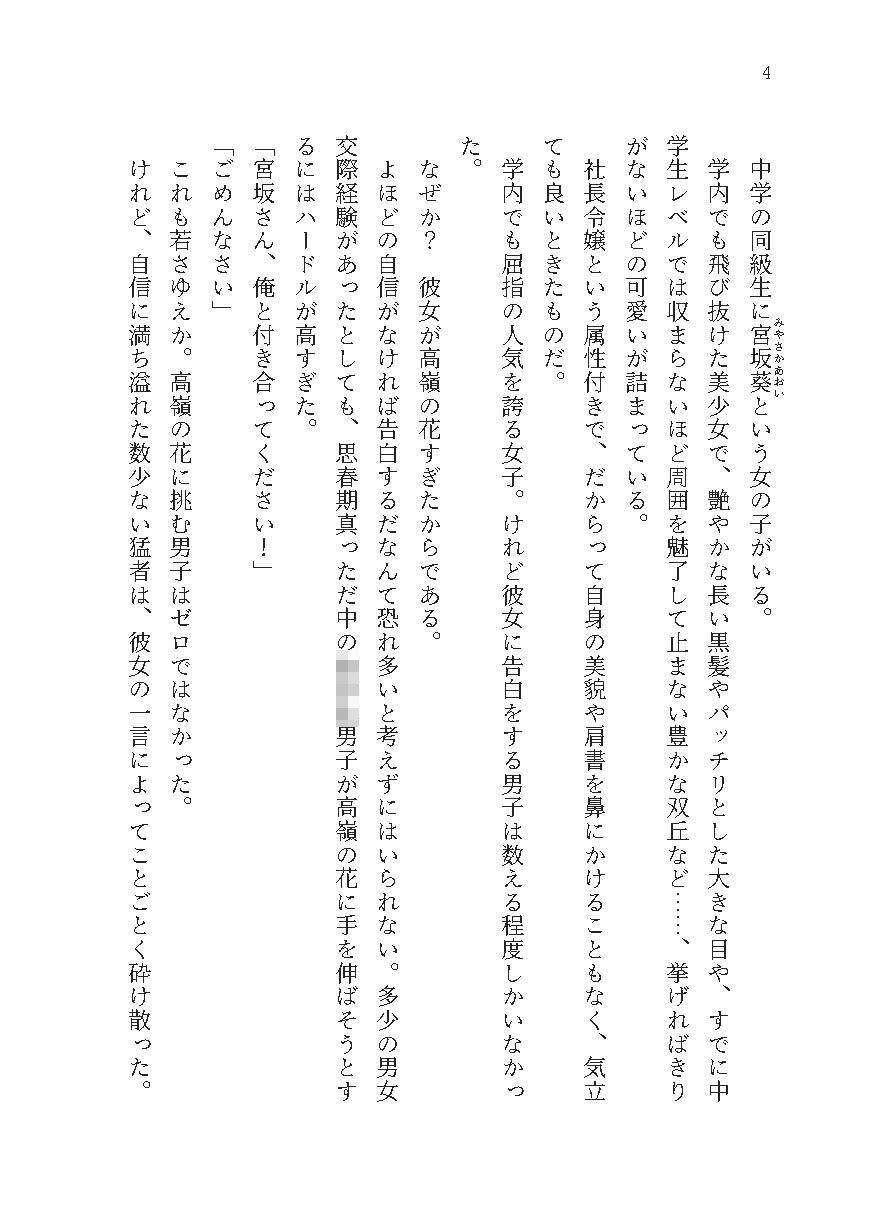 4
中学の同級生に宮坂葵という女の子がいる。
みやさかあおい
学内でも飛び抜けた美少女で、艶やかな長い黒髪やパッチリとした大きな目や、
挙げればきり
がないほどの可愛いが詰まっている。
社長令嬢という属性付きで、だからって自身の美貌や肩書を鼻にかけることもなく、気立
ても良いときたものだ。
学内でも屈指の人気を誇る女子。けれど彼女に告白をする男子は数える程度しかいなかっ
た。
なぜか？　彼女が高嶺の花すぎたからである。
よほどの自信がなければ告白するだなんて恐れ多いと考えずにはいられない。多少の男女
交際経験があったとしても、思春期真っただ中の男子が高嶺の花に手を伸ばそうとす
るにはハードルが高すぎた。
「宮坂さん、俺と付き合ってください！」
「ごめんなさい」
これも若さゆえか。高嶺の花に挑む男子はゼロではなかった。
けれど、自信に満ち溢れた数少ない猛者は、彼女の一言によってことごとく砕け散った。